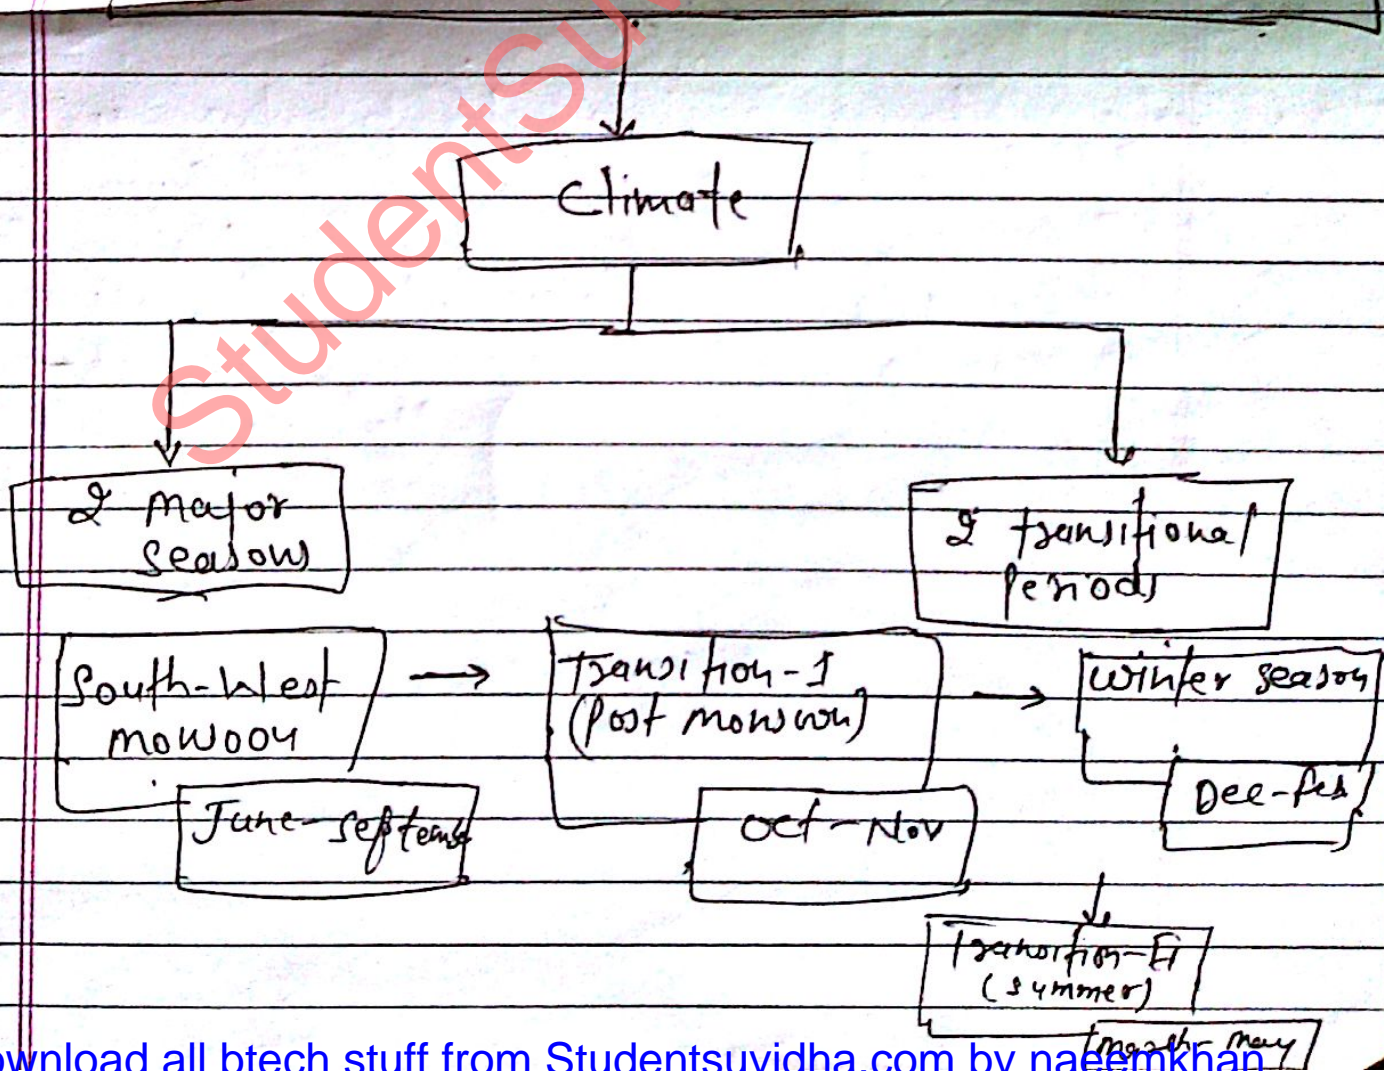 Climate
2 Major
seasons
2 transitional
periods
South-West
monsoon
June-Septemb
Transition-I
(Post monsoon)
Oct-Nov
Winter season
Dec-Feb
Transition-II
(summer)
March-May
StudentSu
ownload all btech stuff from Studentsuvidha.com by naeemkhan